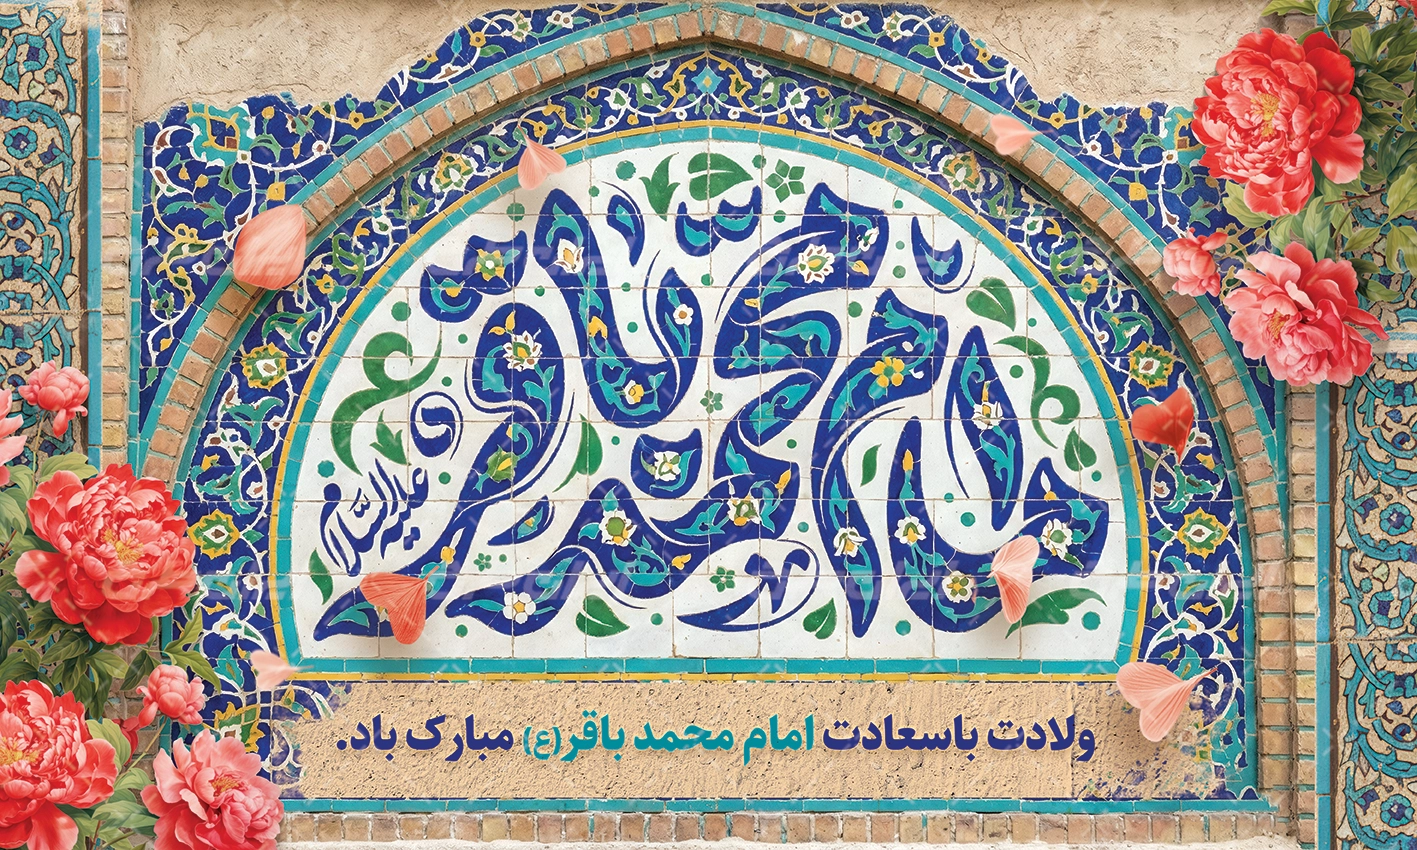 امام محمد باقر
علیه السلام
ولادت باسعادت امام محمد باقر(ع) مبارک باد.